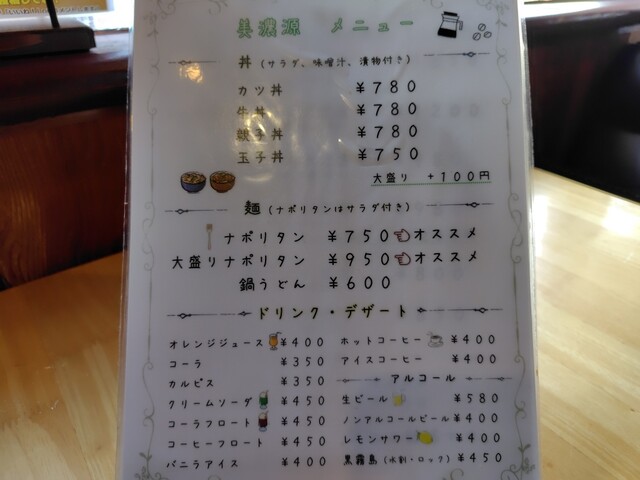 美濃源 メニュー
丼 (サラダ、味噌汁、漬物付き)
カツ丼 ¥780
牛丼 ¥780
親子丼 ¥780
玉子丼 ¥750
大盛り +100円
麺 (ナポリタンはサラダ付き)
ナポリタン ¥750 オススメ
大盛りナポリタン ¥950 オススメ
鍋うどん ¥600
ドリンク・デザート
オレンジジュース ¥400
コーラ ¥350
カルピス ¥350
クリームソーダ ¥450
コーラフロート ¥450
コーヒーフロート ¥450
バニラアイス ¥400
ホットコーヒー ¥400
アイスコーヒー ¥400
アルコール
生ビール ¥580
ノンアルコールビール ¥400
レモンサワー ¥400
黒霧島 (水割・ロック) ¥450